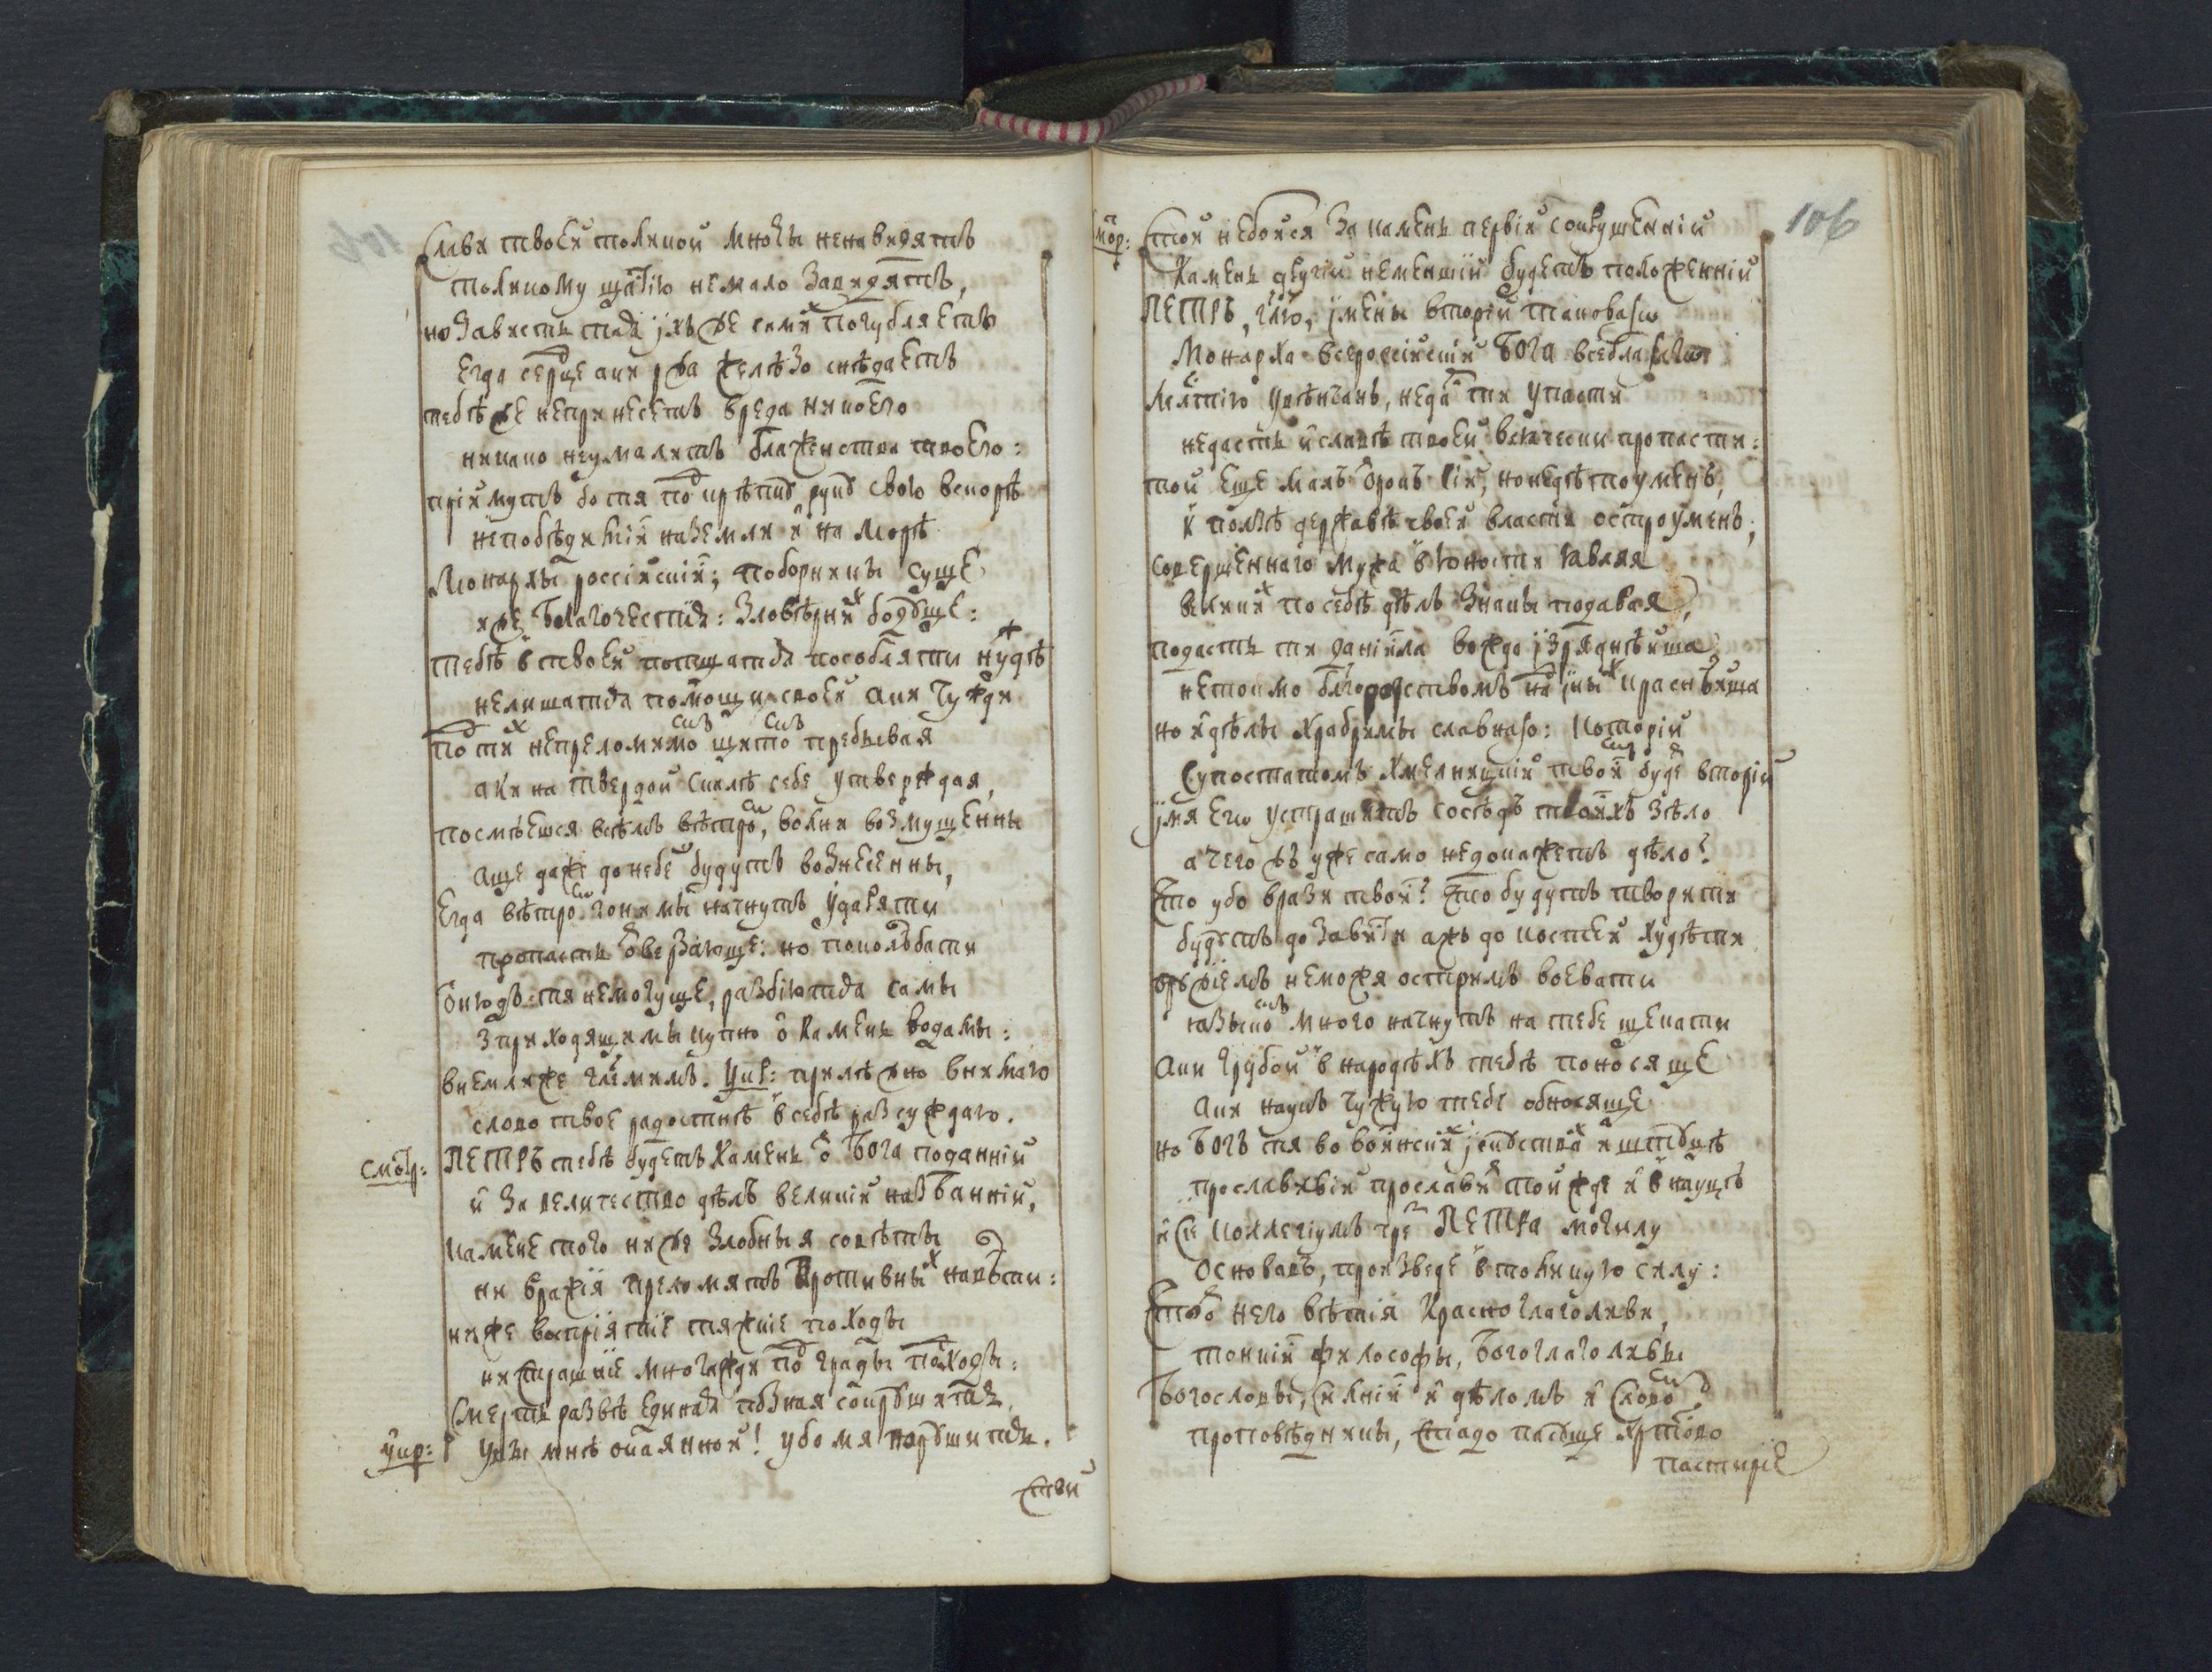 Славѣ твоей толикой мнозы ненавидятъ
толикому щастїю немало завидятъ,
но зависть тая ихъ же самих погубляетъ
егда сердце аки ржа желѣзо снѣдаетъ
тебѣ же непринесетъ вреда никоего
никако неумалитъ блаженства твоего:
прїймутъ бо тя под крѣпкꙋ рукꙋ свою вскорѣ
непобѣдимїи на земли и на морѣ
Монархы россійскіи; поборникы суще
иже Благочестїѧ: зловѣрних бодꙋще:
тебѣ в твоей потщатсѧ пособляти нуждѣ
нелишатсѧ помощи своей аки чужди
под тих непреломимо щито пребывая
аки на твердой скилѣ себе утверждая,
посмѣешся всѣмъ вѣтро, волни возмущенны
аще даже до небе будутъ вознесенны,
Егда вѣтро гонимы начнутъ ударяти
пропасть ѿверзающе: но поколѣбати
ѿнюдъ тя немогуще, разбіютсѧ самы
з приходящимы купно ѿ камень водамы:
внемлиже глемимъ. Укр: прилѣжно внимаю
слово твое радостнѣ в себѣ разсуждаю.
смотр: ПЕТРЪ тебѣ будетъ Камень ѿ Бога поданнїй
и за величество дѣлъ великїй названнїй,
камене того ниже злобныя совѣты
ни вражїя преломятъ противных навѣти:
ниже воспріятїе тяжкіе походы
ни страшніе многажди под грады подходы:
Смерть развѣ единая позная сокрꙋшитъ,
укр: увы мнѣ окаянной! убо мя нарꙋшитъ.
Стой
106
смотр: Стой небойся за камень первїй сокрушеннїй
Камень другїй неменшїй будетъ положеннїй
ПЕТРЪ, глю, имены вторїй таковаго
Монарха всероссійскїй Бога всеблагаго
Млстїю увѣнчанъ, недаст ти упасти
недастъ и славѣ твоей всяческы пропасти:
той еще малъ отрокъ сїй, но нелѣтоуменъ,
к ползѣ державѣ своей власти остроуменъ,
совершеннаго мужа в юности являя
великих по себѣ дѣлъ знакы подавая,
подастъ ти данїила вожда изряднѣйша
нетокмо блгородствомъ над иных краснѣйша
но и дѣлы храбримы славнаго: которїй
Супостатомъ хмелницкїй твоим буде вторїй
имя его устрашитъ сосѣдъ твоихъ зѣло
а чего ѣъ уже само недокажетъ дѣло?
Что убо врази твои? что будутъ творити
будꙋтъ до завїсти ажъ до костей худѣти
орꙋжїемъ неможя острымъ воевати
языко много начнутъ на тебе щекати
Аки грубой в народѣхъ тебѣ поносяще
Аки наукъ чужую тебе обносяще
но Богъ тя во воинских искꙋствах и штꙋцѣ
прославивїй прославит той жде и в науцѣ
и се коллегїумъ чрез ПЕТРА могилу
основавъ, произведе в толикую силу:
что ѿ него вѣтїя красноглаголиви,
тонкїи философы, богоглаголивы
Богословы, силнїи и дѣломъ и слово
проповѣдникы, стадо пасꙋще Хртово
пастирїе